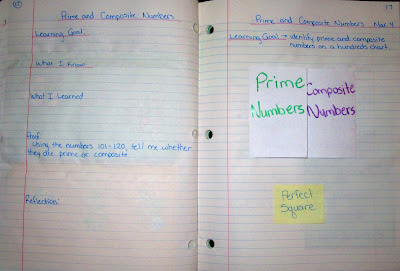 Prime and Composite Numbers
Learning Goal:
What I Know
What I Learned
Proof:
Using the numbers 101-120, tell me whether
they are prime or composite
Reflection:
17
Prime and Composite Numbers Mar. 4
Learning Goal → identify prime and composite
numbers on a hundreds chart.
Prime
Numbers
Composite
Numbers
Perfect
Square